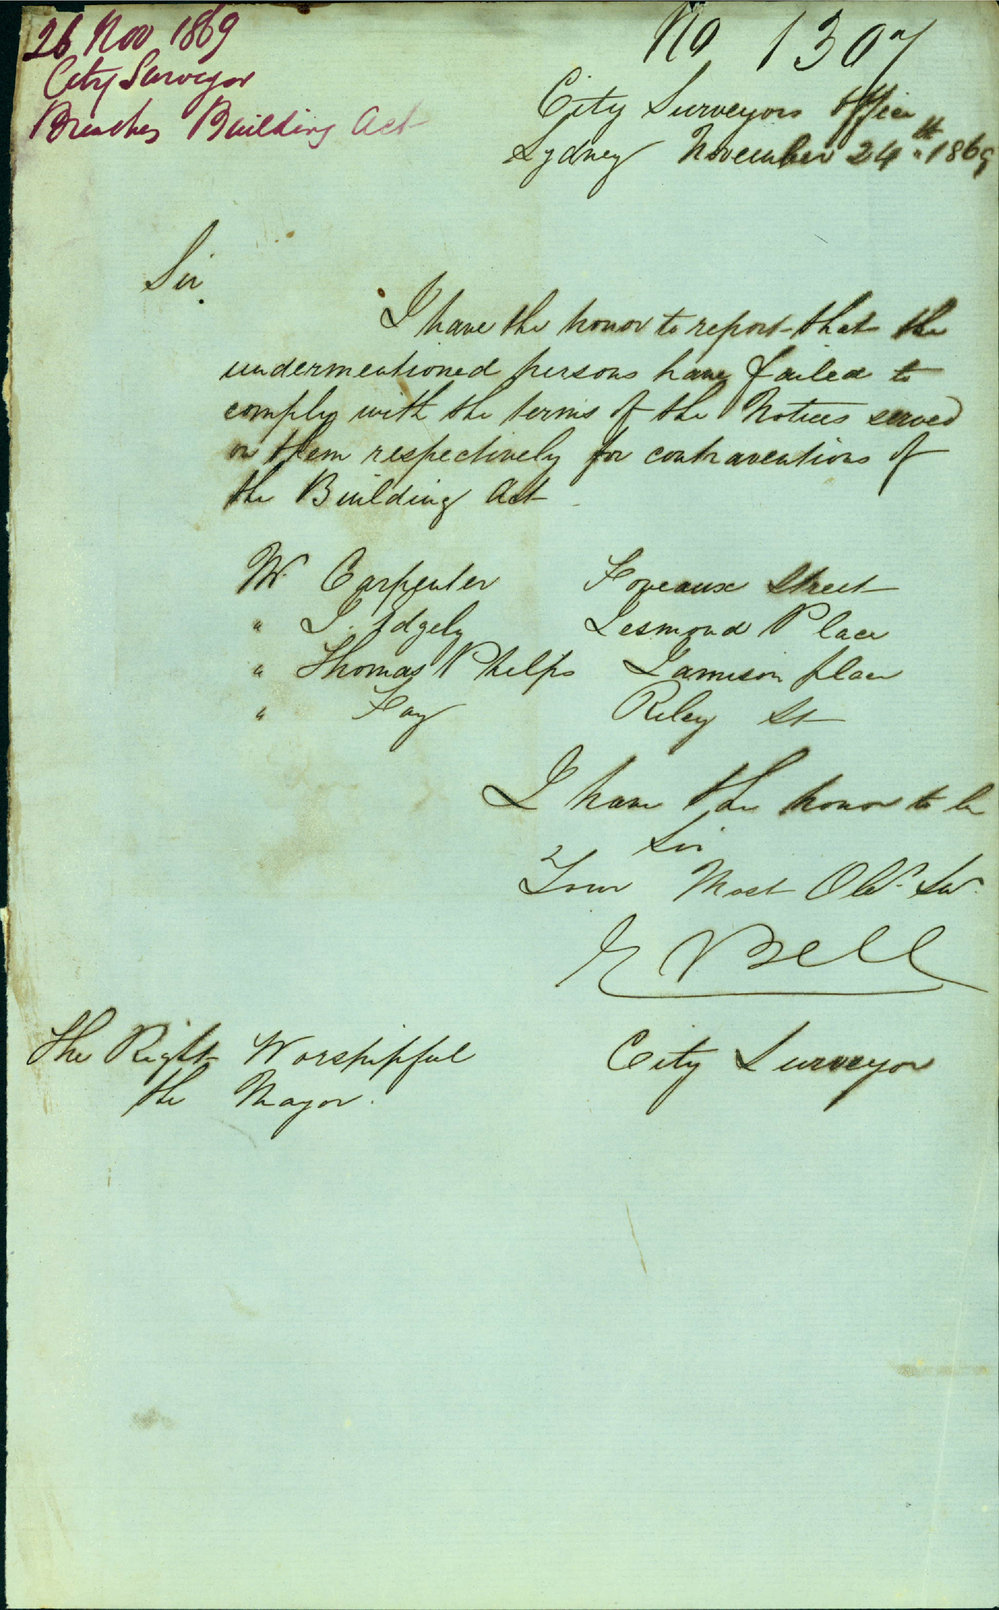 26 Nov 1869
City Surveyor
Breaches Building Act
No 1307
City Surveyors Office
Sydney November 24th 1869
Sir
I have the honor to report that the
undermentioned persons have failed to
comply with the terms of the Notices served
on them respectively for contraventions of
the Building Act
Mr Carpenter Foveaux Street
" J. Idgely Lesmond Place
" Thomas Phelps Jamison place
" Fay Riley St
I have the honor to be
Sir
Your Most Obt. Svt.
E Bell
City Surveyor
The Right Worshipful
the Mayor.